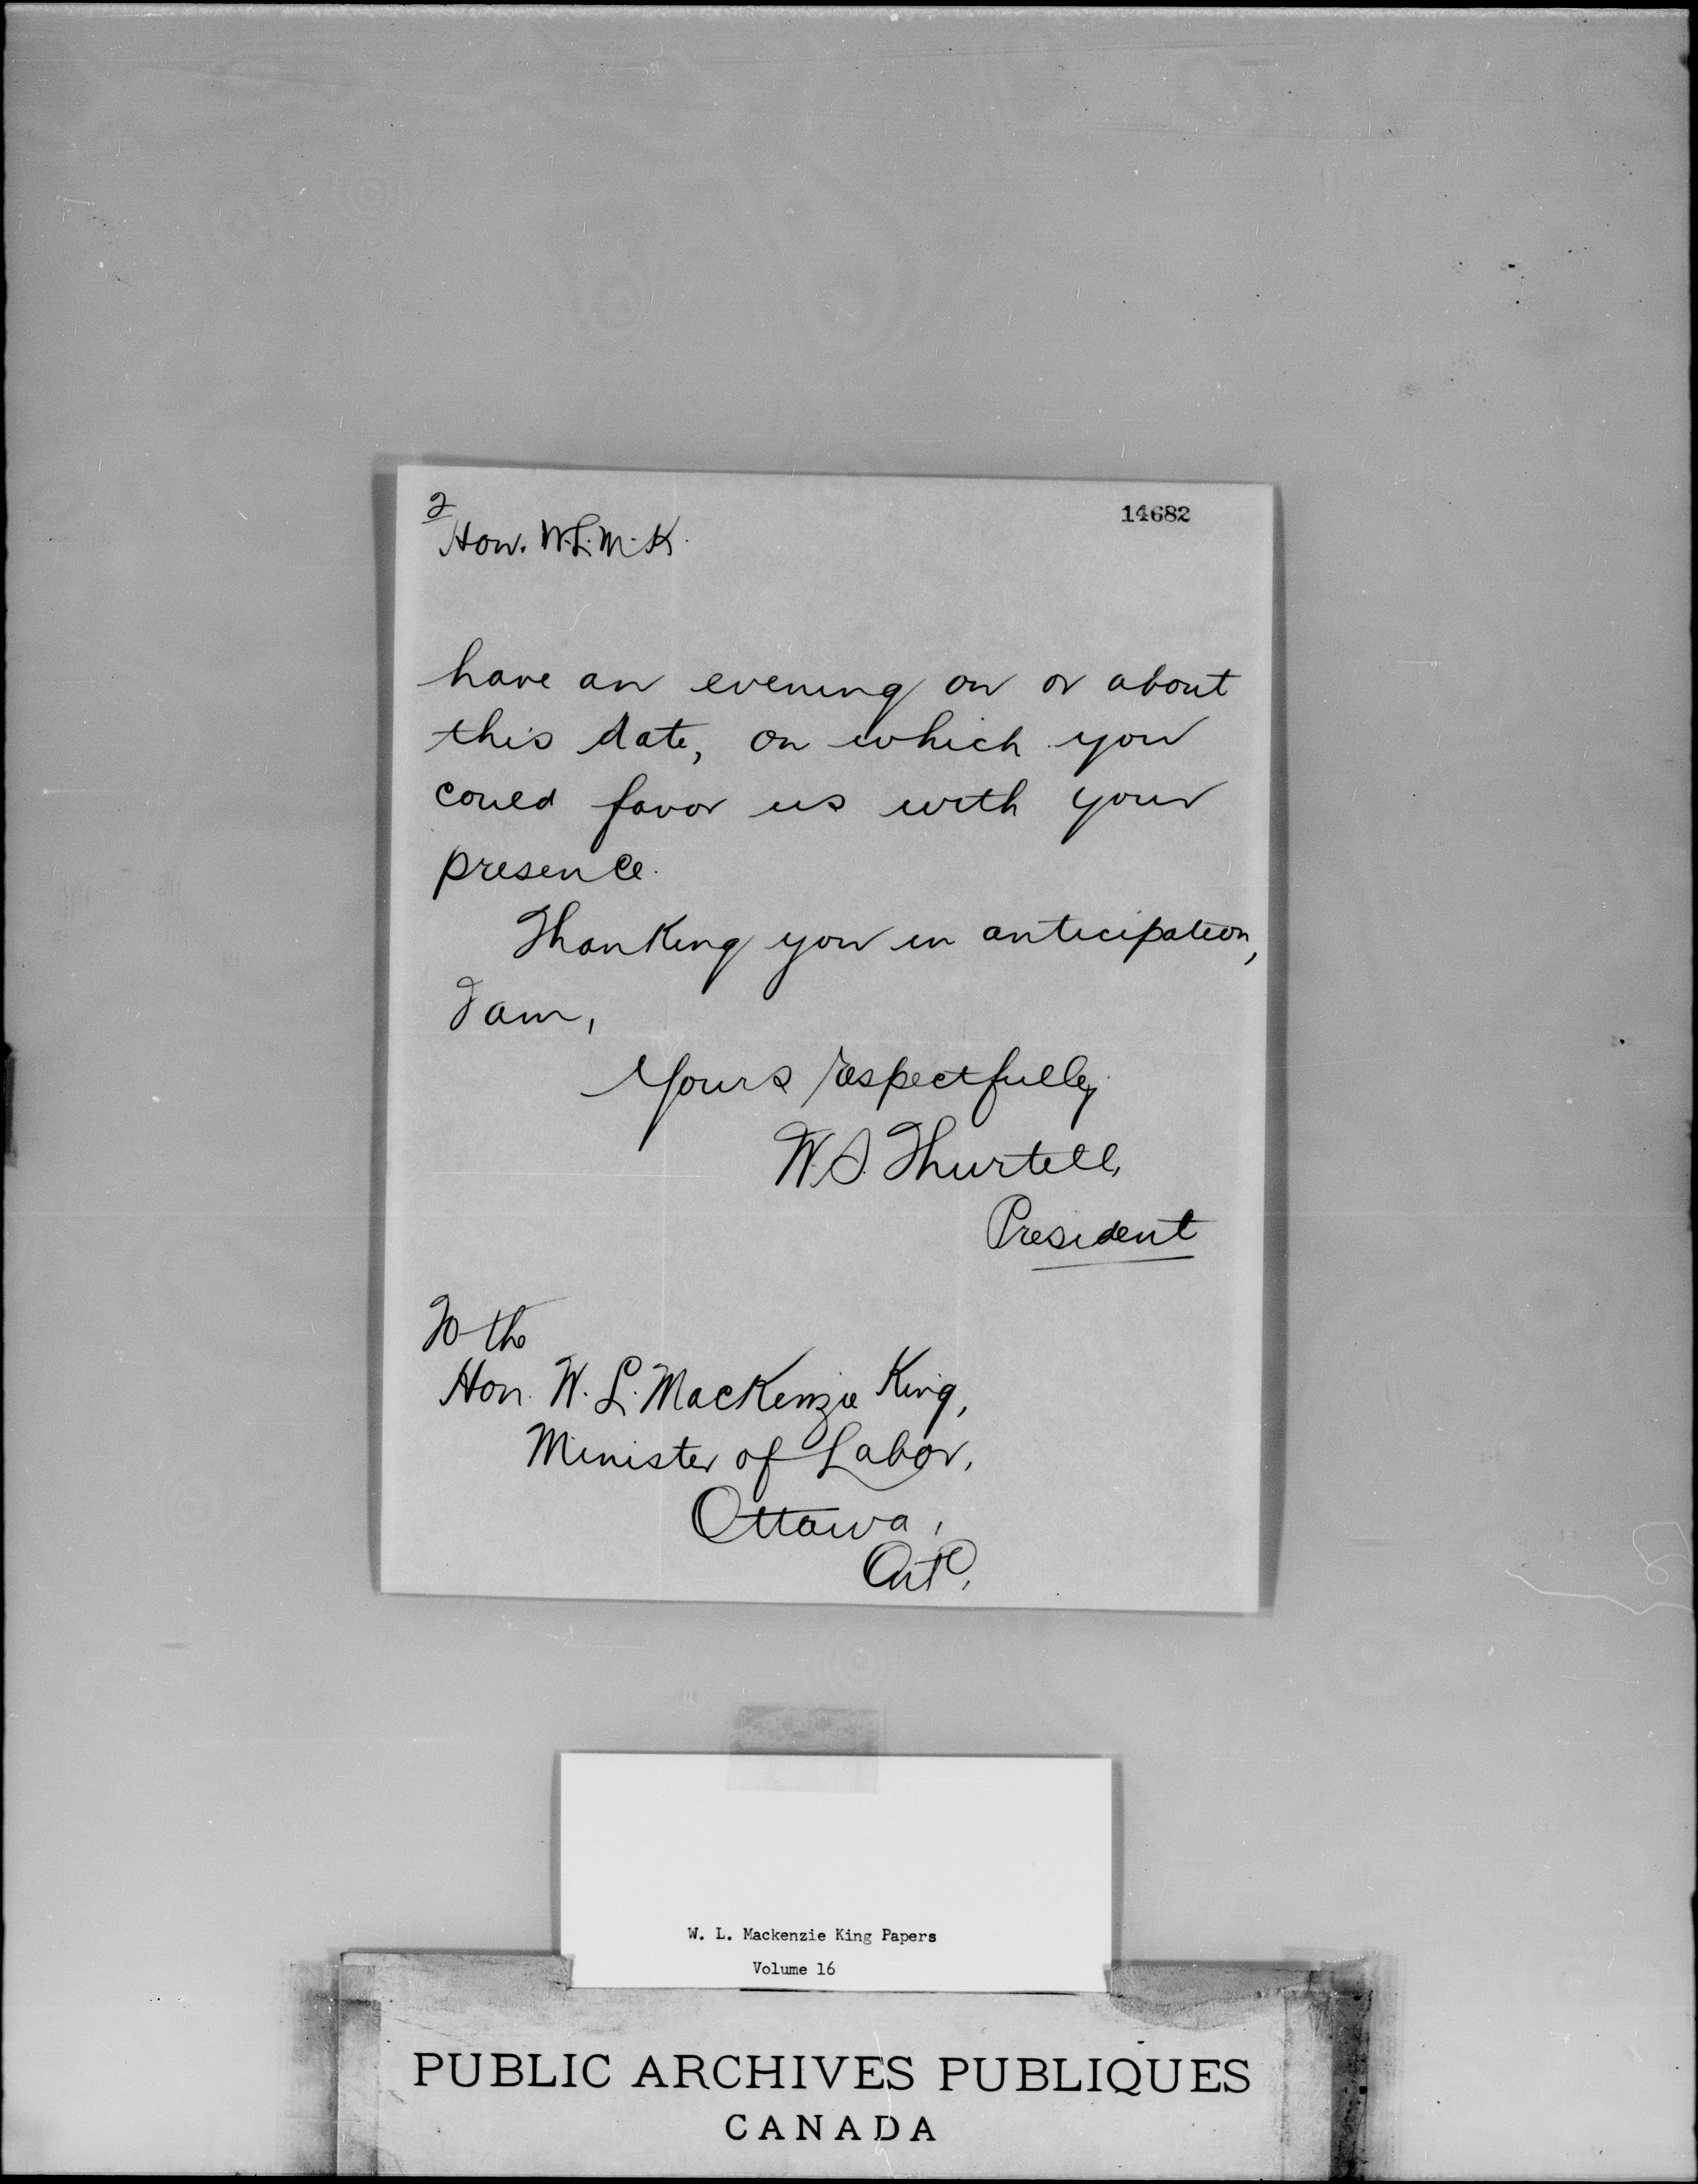 2
14682
Hon. W.L.M.K.
have an evening on or about
this date, on which you
could favor us with your
presence.
Thanking you in anticipation,
I am,
Yours respectfully
W.S. Thurtell,
President
To the
Hon. W. L. MacKenzie King,
Minister of Labor,
Ottawa,
Ont.
W. L. Mackenzie King Papers
Volume 16
PUBLIC ARCHIVES PUBLIQUES
CANADA